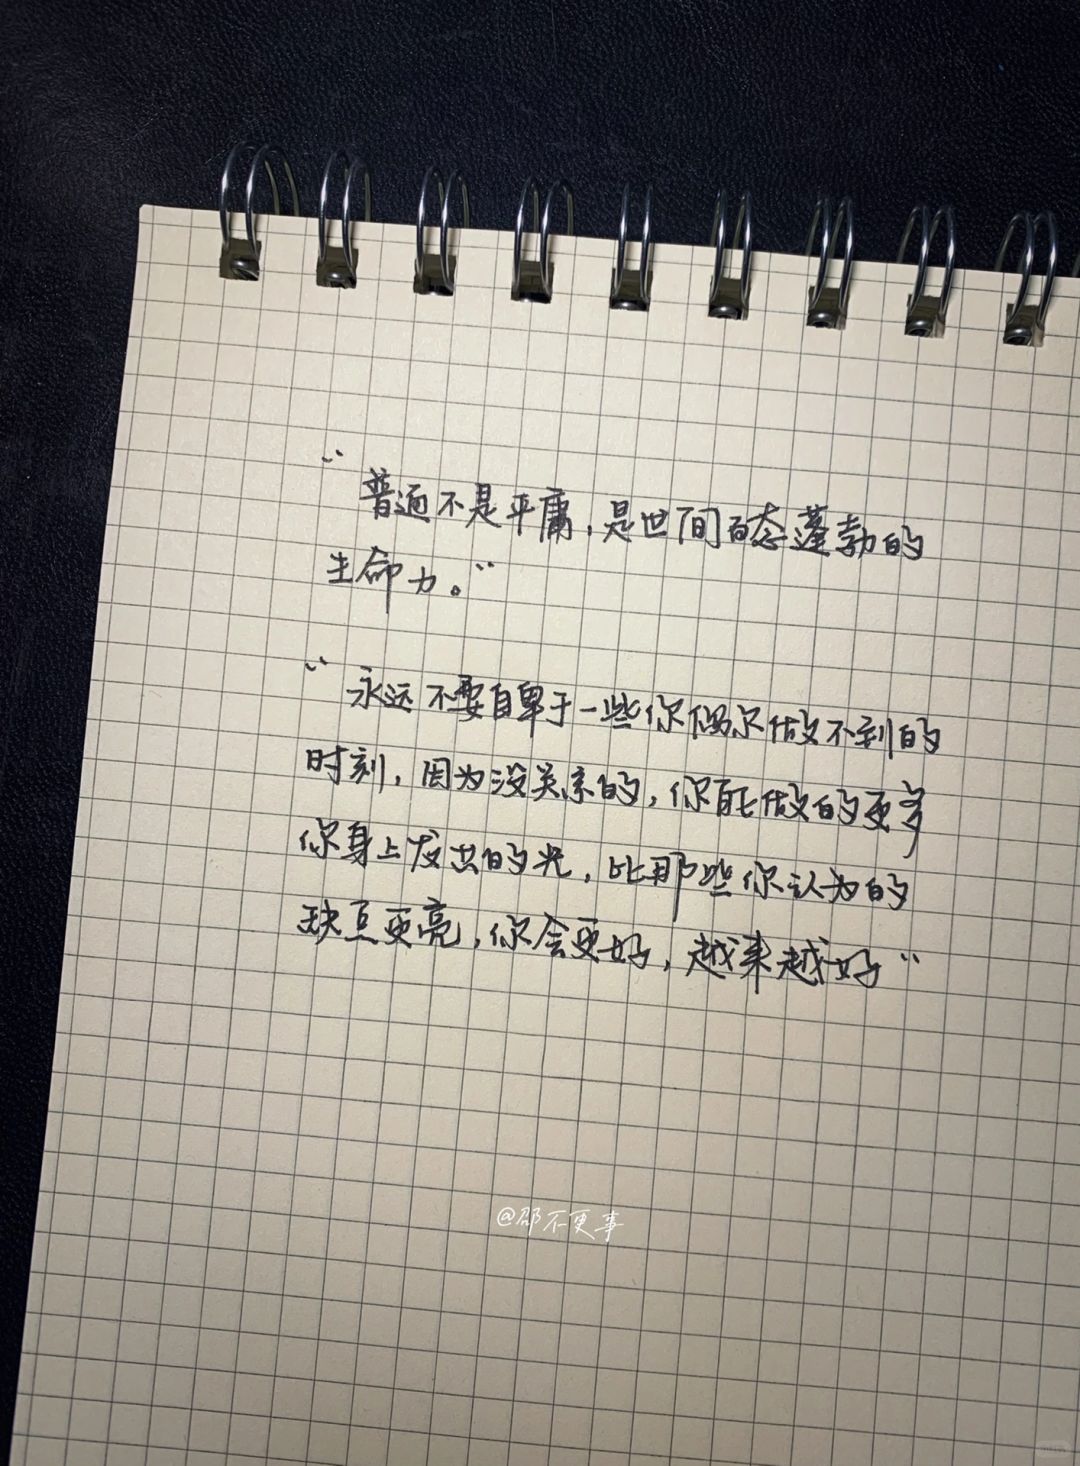 “普通不是平庸，是世间百态蓬勃的
生命力。”
“永远不要自卑于一些你偶尔做不到的
时刻，因为没关系的，你能做的更多
你身上发出的光，比那些你认为的
缺点更亮，你会更好，越来越好”
@邵不更事